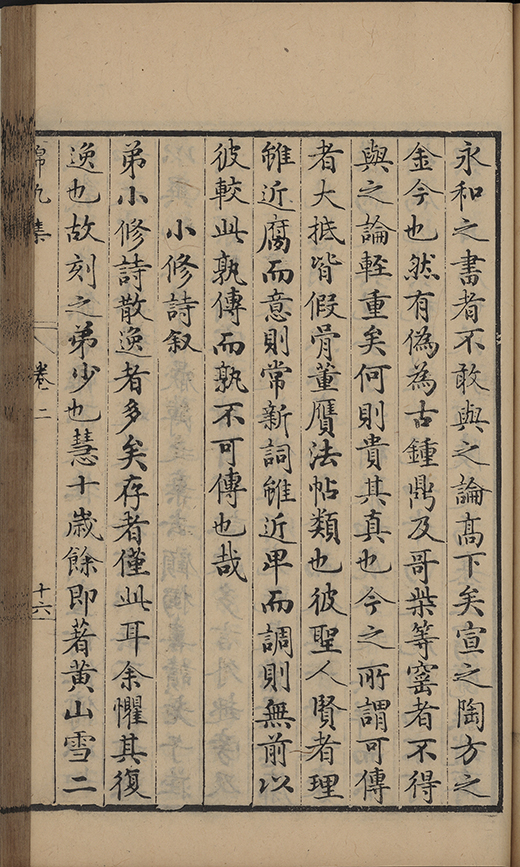 永和之書者不敢與之論髙下矣宣之陶方之
金今也然有偽為古鍾鼎及哥柴等窰者不得
與之論輊重矣何則貴其真也今之所謂可傳
者大抵皆假骨董贋法帖類也彼聖人賢者理
雖近腐而意則常新詞雖近卑而調則無前以
彼較此孰傳而孰不可傳也哉
小修詩叙
弟小修詩散逸者多矣存者僅此耳余懼其復
逸也故刻之弟少也慧十歲餘即著黃山雪二
錦帆集
卷二
十六